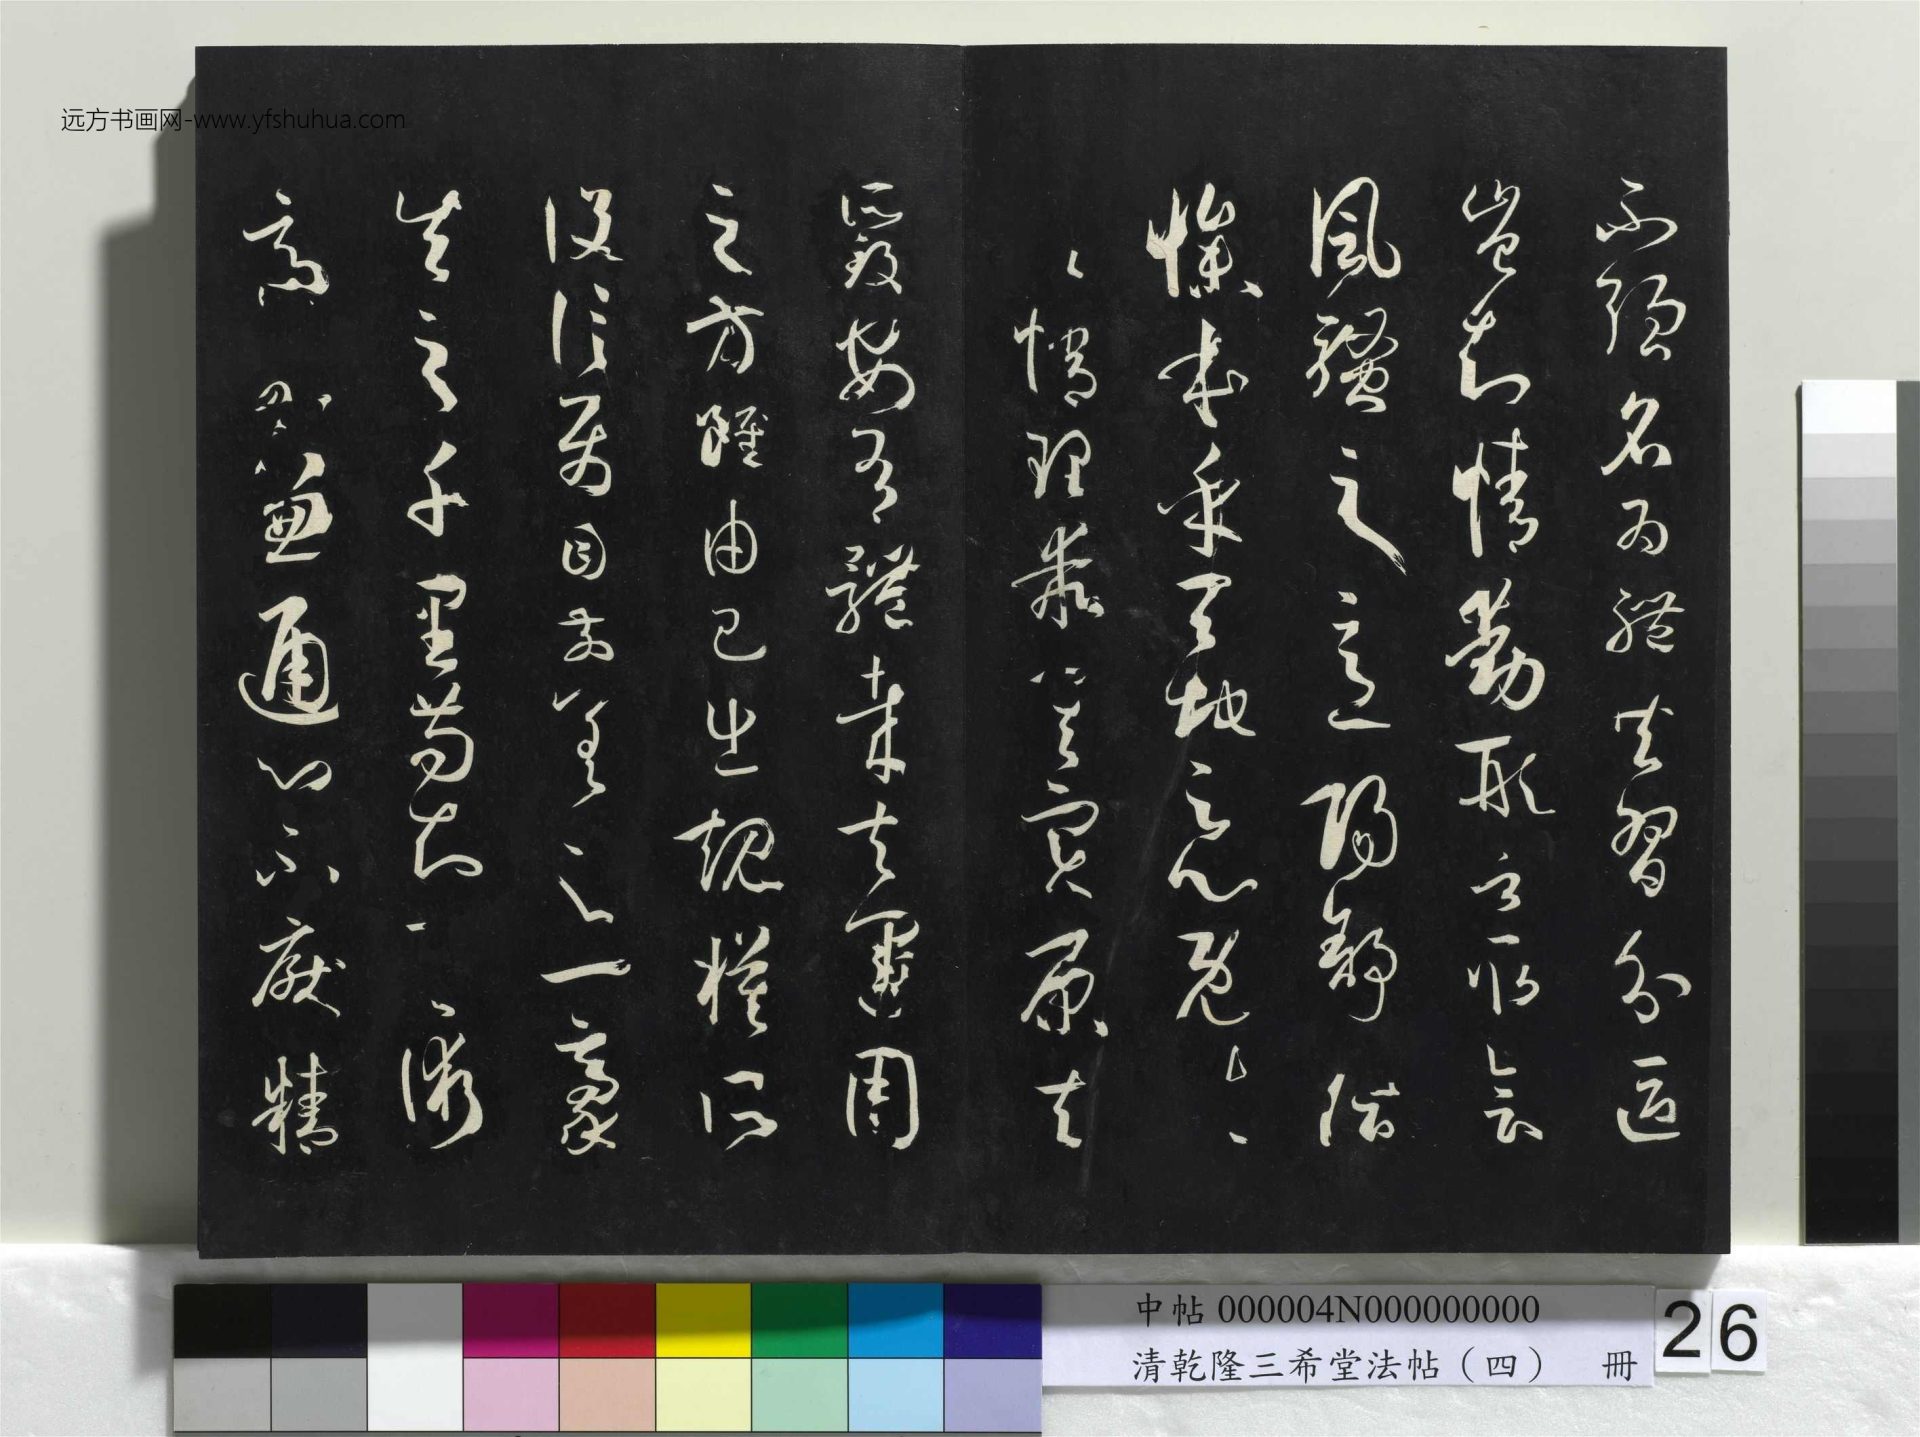 而強名為體共習分區
豈知情動形言取會
風騷之意陽舒陰
慘本乎天地之心既失
其情理乖其實原夫
所致安有體哉夫運用
之方雖由己出規模所
設信屬目前差之一豪
失之千里苟知其術
適可兼通心不厭精
远方书画网-www.yfshuhua.com
中帖 000004N000000000
清乾隆三希堂法帖（四） 冊
26